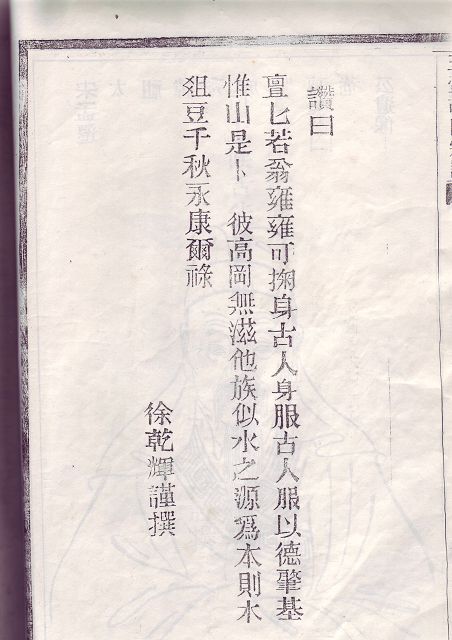 讚曰
亶匕若翁雍雍可掬身古人身服古人服以德肇基
惟山是卜 彼高岡無滋他族似水之源爲本則水
俎豆千秋永康爾祿
徐乾輝謹撰